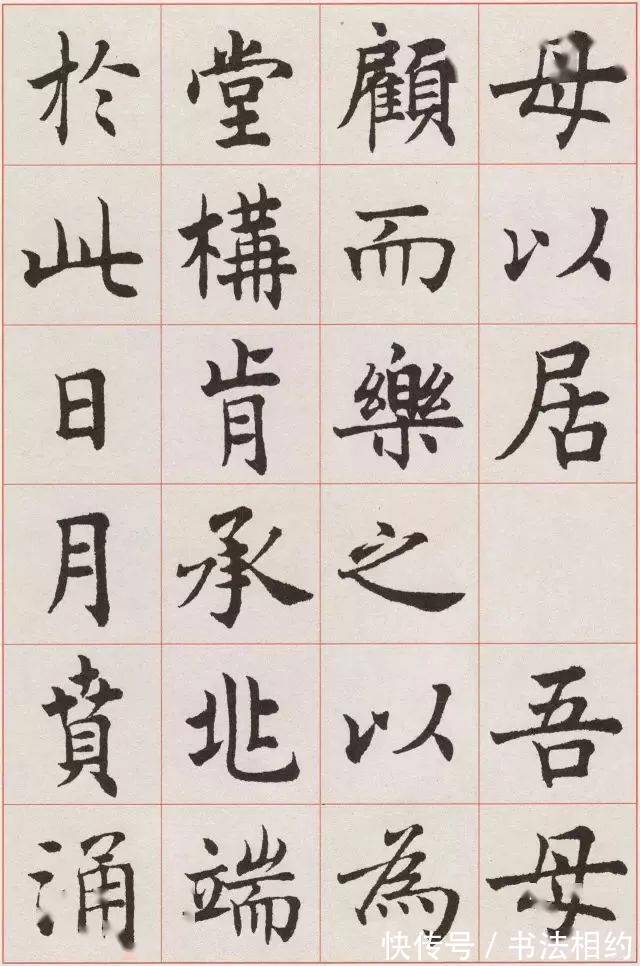 母以居 吾母
顧而樂之以為
堂構肯承非端
於此日月賁涌
快传号 / 书法相约